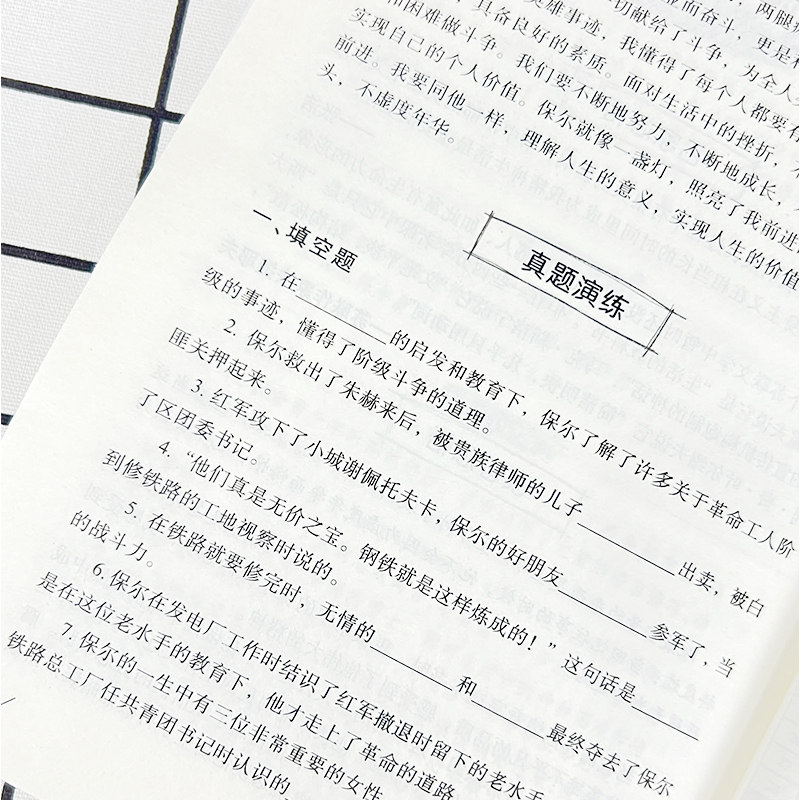 而奋斗，更是和
切献给了斗争，为全人
困难做斗争。我们要不断地努力，不断地成长，
具备良好的素质。面对生活中的挫折，不
英雄事迹，我懂得了每个人都要有
实现自己的个人价值。保尔就像一盏灯，照亮了我前进
前进。我要同他一样，理解人生的意义，实现人生的价值
头，不虚度年华。
真题演练
一、填空题
1. 在________的启发和教育下，保尔了解了许多关于革命工人阶
级的事迹，懂得了阶级斗争的道理。
2. 保尔救出了朱赫来后，被贵族律师的儿子________出卖，被白
匪关押起来。
3. 红军攻下了小城谢佩托夫卡，保尔的好朋友________参军了，当
了区团委书记。
4. “他们真是无价之宝。钢铁就是这样炼成的！”这句话是________
到修铁路的工地视察时说的。
5. 在铁路就要修完时，无情的________和________最终夺去了保尔
的战斗力。
6. 保尔在发电厂工作时结识了红军撤退时留下的老水手
是在这位老水手的教育下，他才走上了革命的道路
7. 保尔的一生中有三位非常重要的女性
铁路总工厂任共青团书记时认识的